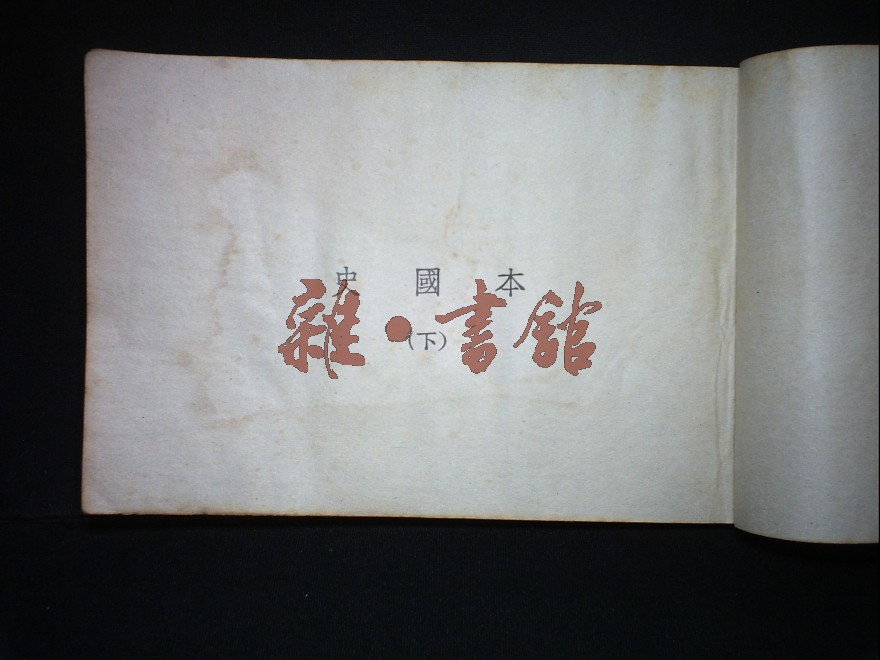 本國史
(下)
雜·書館